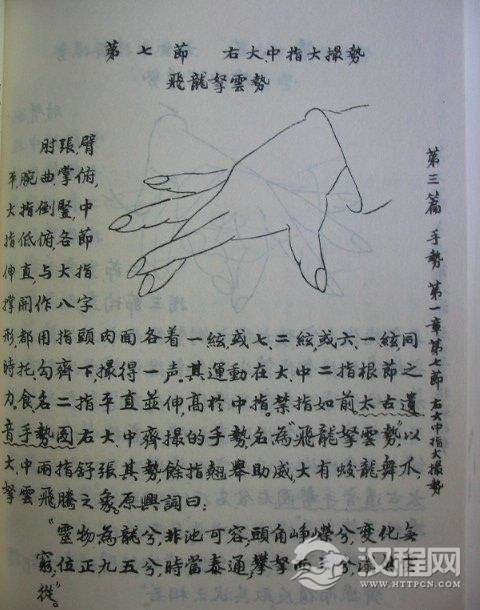 第七節 右大中指大撮勢
飛龍拏雲勢
肘張,臂
平,腕曲.掌俯,
大指倒豎,中
指低俯,各節
伸直,与大指
撑開作八字
形都用指頭肉面各着一絃或七二絃,或六、一絃同
時托勾齊下,撮得一声.其運動在大、中二指根節之
力.食名二指平直並伸,高於中指.禁指如前太古遺
音手勢圖右大、中齊撮的手勢,名為"飛龍拏雲勢"以
大中兩指舒張其勢,餘指翹舉助威,大有蛟龍舞爪,
拏雲飛騰之象.原興詞曰:
"靈物為龍兮,非池可容,頭角崢嶸兮,變化無
窮,位正九五兮,時當泰運,攀拏
從。"
第三篇 手勢 第一章第七節 右大中指大撮勢
汉程网
HTTPCN.COM